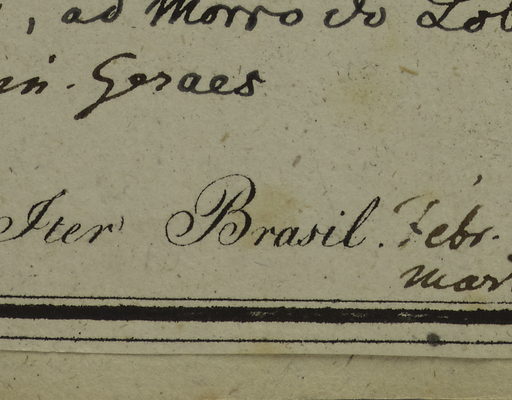 , ad Morro do Lob
in. Geraes
Iter Brasil. Febr.
mart